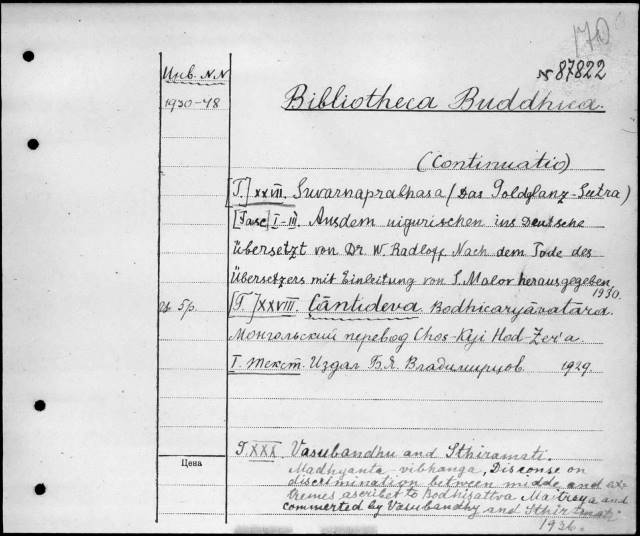 170
№ 87822
Инв. N.N
1930-48
Bibliotheca Buddhica.
(Continuatio)
[T.] XXVII. Suvarnaprabhasa (Das Goldglanz-Sutra)
[Fasc] I-III. Ausdem uigurischen ins Deutsche
übersetzt von Dr. W. Radloff. Nach dem Tode des
Übersetzers mit Einleitung von S. Malov herausgegeben
1930.
5р. [T.] XXVIII. Çāntideva. Bodhicaryāvatāra.
Монгольский перевод Chos-Kyi Hod-Zer'a
I. Текст. Издал Б.Я. Владимирцов 1929.
T. XXX. Vasubandhu and Sthiramati.
Цена
Madhyanta-vibhanga, Disconse on
discrimination between midde and ex-
tremes ascribet to Bodhisattva Maitreya and
commerted by Vasubandhy and Sthirimati
1936.